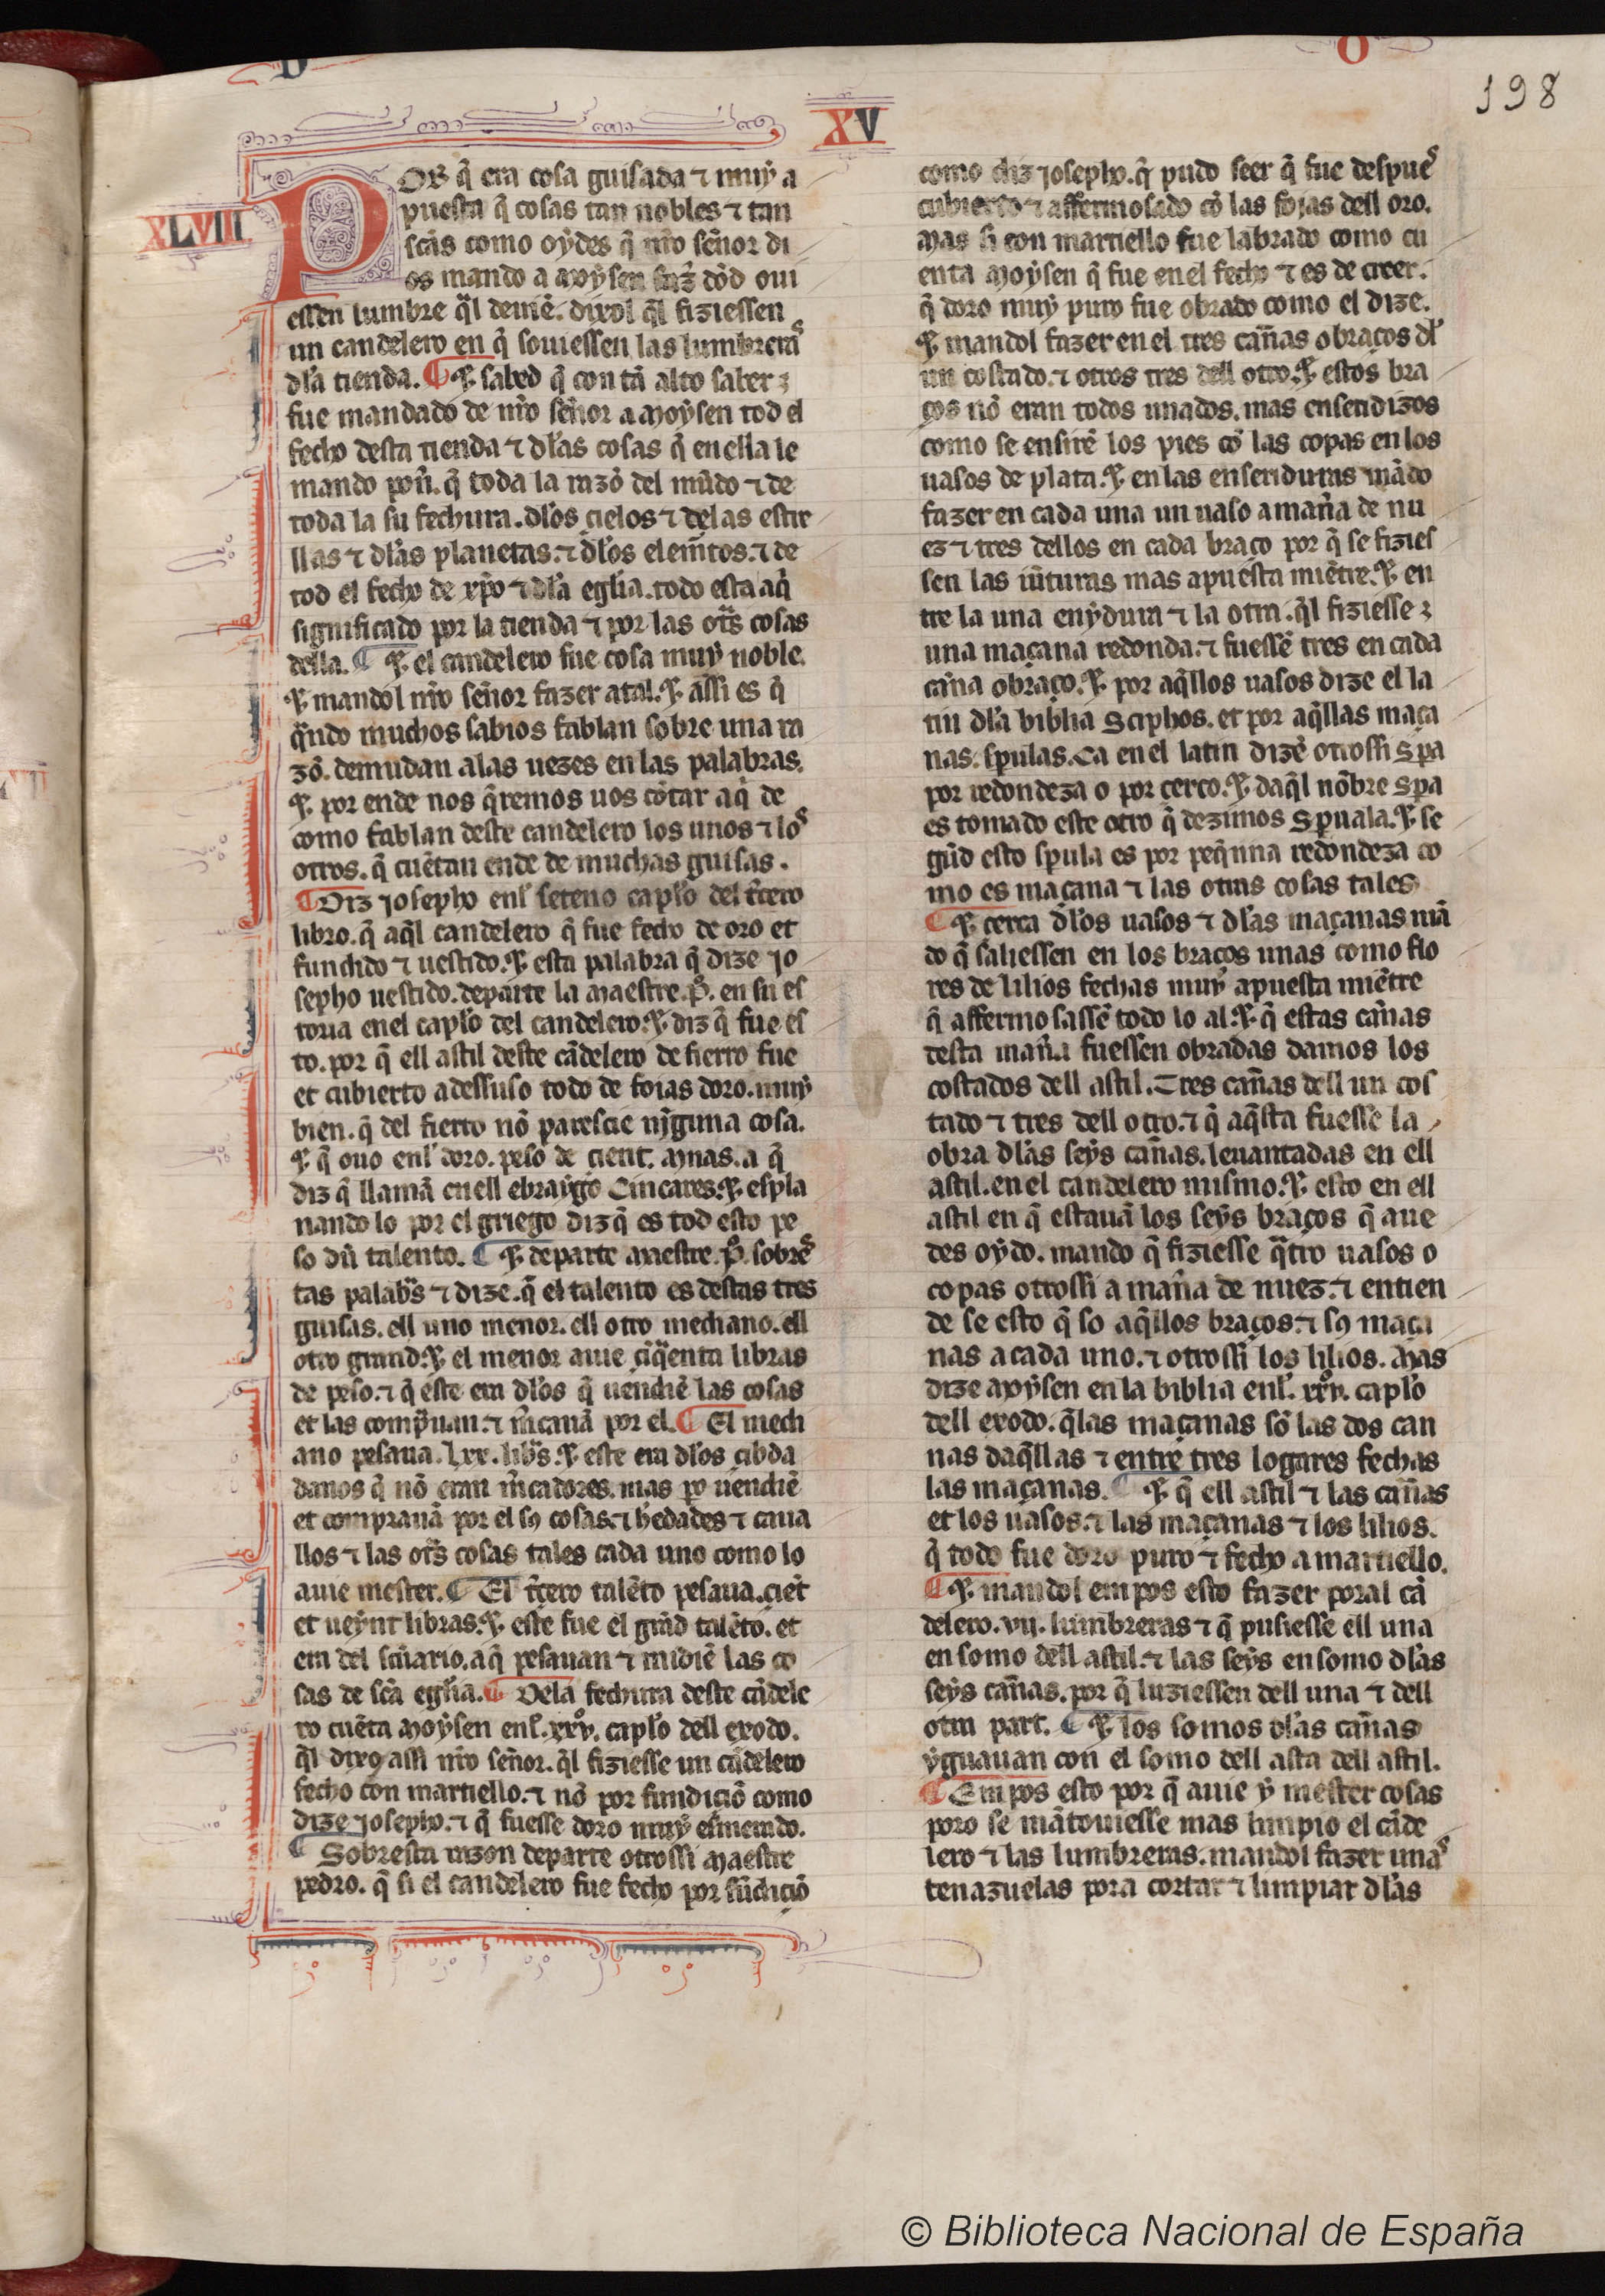 O
198
XV
XLVIII
POR q̃ era cosa guisada ⁊ muẏ a
puesta q̃ cosas tan nobles ⁊ tan
sc̃as como oẏdes q̃ nr̃o señor di
os mando a moẏsen faz̃ dõd oui
essen lumbre q̃l deuiẽ. dixol q̃l fiziessen
un candelero en q̃ souiessen las lumbreras
dľa tienda. ¶ ⁊ sabed q̃ con tã alto saber
fue mandado de nr̃o señor a moẏsen tod el
fecho desta tienda ⁊ dľas cosas q̃ en ella le
mando poñ. q̃ toda la razõ del mũdo ⁊ de
toda la su fechura. dľos çielos ⁊ delas estre
llas ⁊ dľas planetas. ⁊ dľos elem̃tos. ⁊ de
tod el fecho de xp̃o ⁊ dľa egľia. todo esta aq̃
significado por la tienda ⁊ por las ot̃s cosas
della. ¶ ⁊ el candelero fue cosa muẏ noble.
⁊ mandol nr̃o señor fazer atal. ⁊ assi es q̃
q̃ndo muchos sabios fablan sobre una ra
zõ. demudan alas uezes en las palabras.
⁊ por ende nos q̃remos uos cõtar aq̃ de
como fablan deste candelero los unos ⁊ los
otros. q̃ cuẽtan ende de muchas guisas.
¶ Diz josepho enľ seteno capľo del t̃cero
libro. q̃ aq̃l candelero q̃ fue fecho de oro et
fundido ⁊ uestido. ⁊ esta palabra q̃ dize jo
sepho uestido. departe la maestre. P̊. en su es
toria en el capľo del candelero. ⁊ diz q̃ fue es
to. por q̃ ell astil deste cãdelero de fierro fue
et cubierto adessuso todo de foias doro. muẏ
bien. q̃ del fierro nõ paresçie nĩguna cosa.
⁊ q̃ ouo enľ doro. peso de çient. mnas. a q̃
diz q̃ llamã en ell ebraẏgo Cincares. ⁊ espla
nando lo por el griego diz q̃ es tod esto pe
so dũ talento. ¶ ⁊ departe maestre. P̊. sobres
tas palab̃s ⁊ dize. q̃ el talento es destas tres
guisas. ell uno menor. ell otro mediano. ell
otro grand. ⁊ el menor auie çiq̃enta libras
de peso. ⁊ q̃ este era dľos q̃ uendiẽ las cosas
et las comp̃uan. ⁊ m̃cauã por el. ¶ El medi
ano pesaua. Lxx. lib̃s. ⁊ este era dľos çibda
danos q̃ nõ eran m̃cadores. mas ꝑo uendiẽ
et comprauã por el sꝯ cosas. ⁊ h̃edades ⁊ caua
llos ⁊ las ot̃s cosas tales cada uno como lo
auie mester. ¶ El t̃cero talẽto pesaua. çiet̃
et ueẏnt libras. ⁊ este fue el grãd talẽto. et
era del sc̃uario. aq̃ pesauan ⁊ midiẽ las co
sas de sc̃a egľia. ¶ Dela fechura deste cãdele
ro cuẽta moẏsen enľ. xxv̊. capľo dell exodo.
q̃l dixo assi nr̃o señor. q̃l fiziesse un cãdelero
fecho con martiello. ⁊ nõ por fundiciõ como
dize josepho. ⁊ q̃ fuesse doro muẏ esmerado.
¶ Sobresta razon departe otrossi maestre
pedro. q̃ si el candelero fue fecho por fũdiçiõ
como diz josepho. q̃ pudo seer q̃ fue despues
cubierto ⁊ affermosado cõ las fojas dell oro.
mas si con martiello fue labrado como cu
enta moẏsen q̃ fue en el fecho ⁊ es de creer.
q̃ doro muẏ puro fue obrado como el dize.
⁊ mandol fazer en el tres cañas o braços dľ
un costado. ⁊ otros tres dell otro. ⁊ estos bra
ços nõ eran todos unados. mas enseridizos
como se enfirẽ los pies cõ las copas en los
uasos de plata. ⁊ en las enseriduras mãdo
fazer en cada una un uaso a mañ̃a de nu
ez ⁊ tres dellos en cada braço por q̃ se fizies
sen las iũturas mas apuesta miẽtre. ⁊ en
tre la una enẏdura ⁊ la otra. q̃l fiziesse
una maçana redonda. ⁊ fuessẽ tres en cada
caña o braço. ⁊ por aq̃llos uasos dize el la
tin dľa biblia Sciphos. et por aq̃llas maça
nas. sp̃ulas. Ca en el latin dizẽ otrossi Sp̃a
por redondeza o por çerco. ⁊ daq̃l nõbre Sp̃a
es tomado este otro q̃ dezimos Sp̃uala. ⁊ se
gũd esto sp̃ula es por peq̃nna redondeza co
mo es maçana ⁊ las otras cosas tales
¶ ⁊ çerca dľos uasos ⁊ dľas maçanas mã
do q̃ saliessen en los braços unas como flo
res de lilios fechas muẏ apuesta miẽtre
q̃ affermosassẽ todo lo al. ⁊ q̃ estas cañas
desta mañ̃a fuessen obradas damos los
costados dell astil. Tres cañas dell un cos
tado ⁊ tres dell otro. ⁊ q̃ aq̃sta fuesse la
obra dľas seẏs cañas. leuantadas en ell
astil. en el candelero mismo. ⁊ esto en ell
astil en q̃ estauã los seẏs braços q̃ aue
des oẏdo. mando q̃ fiziesse q̃tro uasos o
copas otrossi a mañ̃a de nuez. ⁊ entien
de se esto q̃ so aq̃llos braços. ⁊ sꝯ maça
nas a cada uno. ⁊ otrossi los lilios. Mas
dize moẏsen en la biblia enľ. xxv̊. capľo
dell exodo. q̃las maçanas sõ las dos can
nas daq̃llas ⁊ entre tres logares fechas
las maçanas. ¶ ⁊ q̃ ell astil ⁊ las cañas
et los uasos. ⁊ las maçanas ⁊ los lilios.
q̃ todo fue doro puro ⁊ fecho a martiello.
¶ ⁊ mandol empos esto fazer poral cã
delero. vij. lumbreras ⁊ q̃ pusiesse ell una
en somo dell astil. ⁊ las seẏs en somo dľas
seẏs cañas. por q̃ luziessen dell una ⁊ dell
otra part. ¶ ⁊ los somos dľas cañas
ẏguauan con el somo dell asta dell astil.
¶ Empos esto por q̃ auie ẏ mester cosas
poro se mãtouiesse mas limpio el cãde
lero ⁊ las lumbreras. mandol fazer unas
tenazuelas pora cortar ⁊ limpiar dľas
© Biblioteca Nacional de España